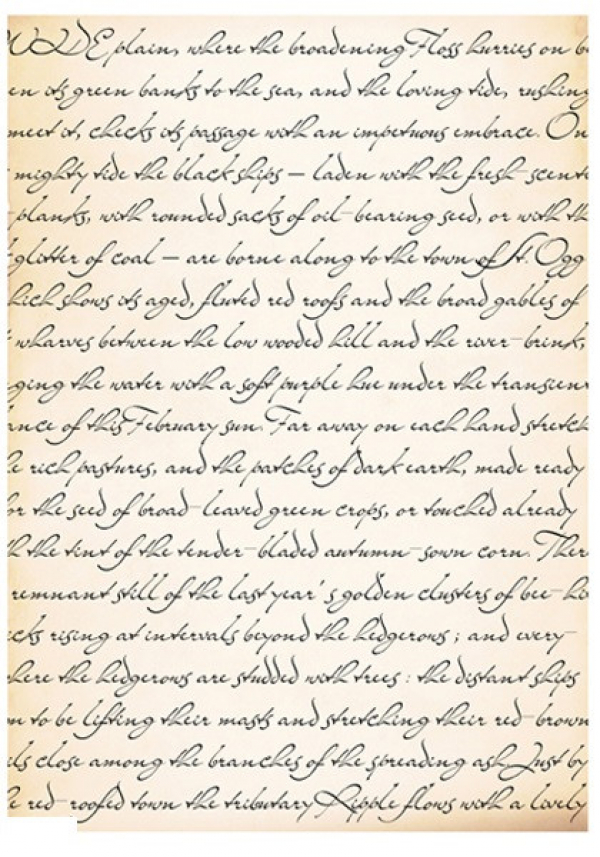 WIDE plain, where the broadening Floss hurries on b
en its green banks to the sea, and the loving tide, rushing
meet it, checks its passage with an impetuous embrace. On
mighty tide the black ships — laden with the fresh-scente
planks, with rounded sacks of oil-bearing seed, or with th
glitter of coal — are borne along to the town of St. Ogg
hich shows its aged, fluted red roofs and the broad gables of
wharves between the low wooded hill and the river-brink,
ging the water with a soft purple hue under the transien
ance of this February sun. Far away on each hand stretch
e rich pastures, and the patches of dark earth, made ready
or the seed of broad-leaved green crops, or touched already
h the tint of the tender-bladed autumn-sown corn. Ther
remnant still of the last year's golden clusters of bee-hi
icks rising at intervals beyond the hedgerows; and every-
here the hedgerows are studded with trees: the distant ships
m to be lifting their masts and stretching their red-brown
ils close among the branches of the spreading ash. Just by
e red-roofed town the tributary Ripple flows with a lively